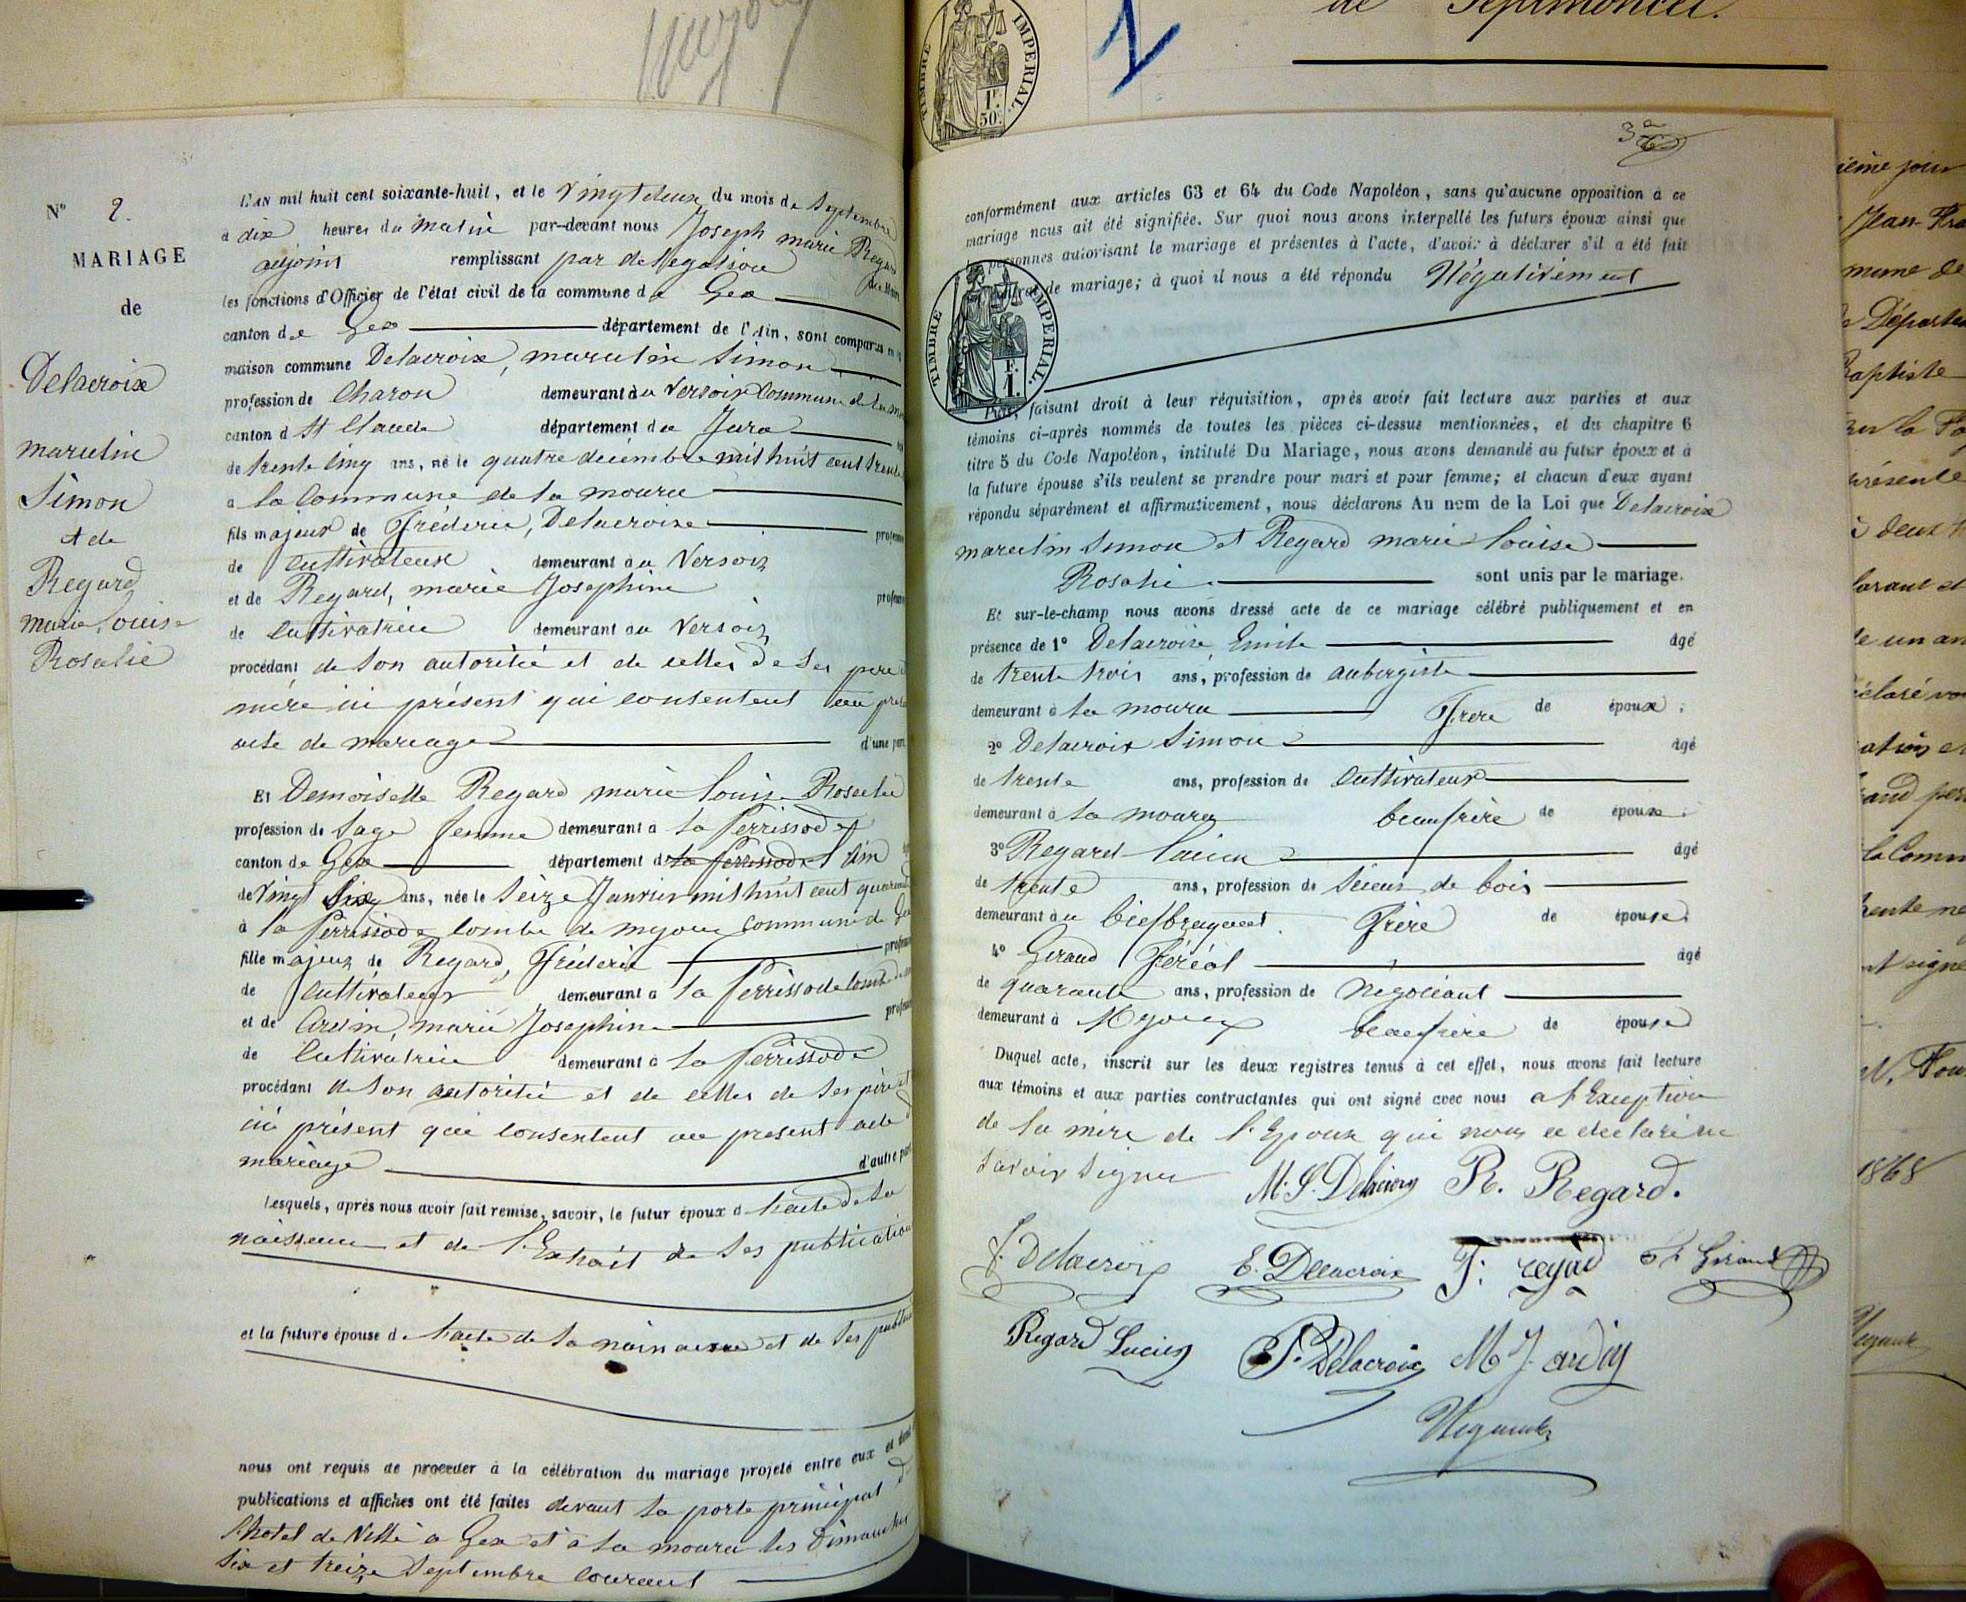 de Septmoncel.
TIMBRE IMPERIAL.
1F.
50c.
2
N° 2.
MARIAGE
de
Delacroix
marcelin
Simon
et de
Regard
marie Louise
Rosalie
L'AN mil huit cent soixante-huit, et le vingt deux du mois de Septembre
à dix heures du matin par-devant nous Joseph marie Regard
adjoint remplissant par dellegation du Maire
les fonctions d'Officier de l'état civil de la commune de Gex
canton de Gex département de l'Ain, sont comparus en
maison commune Delacroix, marcelin Simon
profession de Charon demeurant au Versoix Commune de La
canton d St Claude département du Jura
de trente cinq ans, né le quatre décembre mil huit cent trente
à la Commune de la moura
fils majeur de Fréderic, Delacroix
de Cultivateur demeurant au Versoix
et de Regard, marie Josephine
de Cultivatrice demeurant au Versoix
procédant de son autoritée et de celles de ses pere
mère ici présent qui consentent au
acte de mariage d'une part
Et Demoiselle Regard marie Louise Rosalie
profession de Sage femme demeurant à la Perrissode
canton de Gex département de la Perrissode l'Ain
de vingt Six ans, née le Seize Janvier mil huit cent
à la Perrissode combe de mijoux commune de Gex
fille majeur de Regard, Fréderic
de Cultivateur demeurant à la Perrissode
et de Ardin, marie Josephine
de Cultivatrice demeurant à la Perrissode
procédant de son autoritée et de celles de ses père et
ici présent qui consentent au present acte
mariage d'autre part
Lesquels, après nous avoir fait remise, savoir, le futur époux d l'acte de sa
naissance et de l'Extrait de ses publication
et la future épouse d l'acte de sa naissance et de ses
nous ont requis de procéder à la célébration du mariage projeté entre eux et dont
publications et affiches ont été faites devant la porte principal d
l'hotel de Ville à Gex et à la moura les Dimanches
Six et treize Septembre courant
3e
conformément aux articles 63 et 64 du Code Napoléon, sans qu'aucune opposition à ce
mariage nous ait été signifiée. Sur quoi nous avons interpellé les futurs époux ainsi que
personnes autorisant le mariage et présentes à l'acte, d'avoir à déclarer s'il a été fait
de mariage; à quoi il nous a été répondu Négativement
TIMBRE IMPERIAL.
F.
1.
faisant droit à leur réquisition, après avoir fait lecture aux parties et aux
témoins ci-après nommés de toutes les pièces ci-dessus mentionnées, et du chapitre 6
titre 5 du Code Napoléon, intitulé Du Mariage, nous avons demandé au futur époux et à
la future épouse s'ils veulent se prendre pour mari et pour femme; et chacun d'eux ayant
répondu séparément et affirmativement, nous déclarons Au nom de la Loi que Delacroix
marcelin Simon et Regard marie Louise
Rosalie sont unis par le mariage.
Et sur-le-champ nous avons dressé acte de ce mariage célébré publiquement et en
présence de 1° Delacroix, Emile âgé
de trente trois ans, profession de aubergiste
demeurant à la moura Frère de époux;
2° Delacroix Simon âgé
de trente ans, profession de Cultivateur
demeurant à la moura beaufrère de épouse;
3° Regard Lucien âgé
de trente ans, profession de Scieur de bois
demeurant au Frère de épouse;
4° Giraud Féréol âgé
de quarante ans, profession de Négociant
demeurant à Mijoux beaufrère de épouse
Duquel acte, inscrit sur les deux registres tenus à cet effet, nous avons fait lecture
aux témoins et aux parties contractantes qui ont signé avec nous a l'Exception
de la mère de l'Epoux qui nous a declarée ne
savoir signer M. S. Delacroix R. Regard.
S. Delacroix E. Delacroix F. regad F. Giraud
Regard Lucien F. Delacroix M J. ardin
Regard
jour
Jean-
de
Baptiste
présente
à deux
un an
et
signé
1868